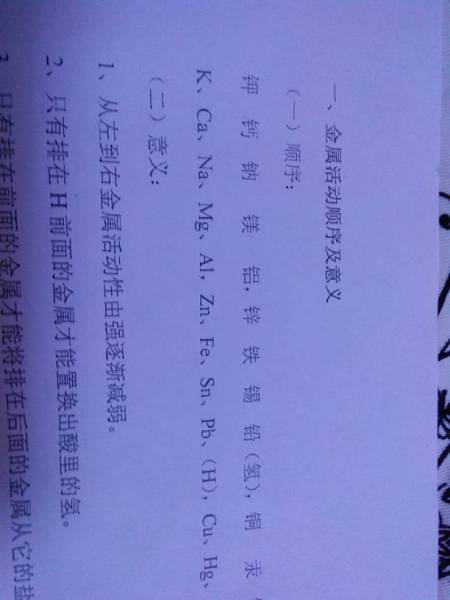 一、金属活动顺序及意义
（一）顺序：
钾 钙 钠 镁 铝，锌 铁 锡 铅（氢），铜 汞
K、Ca、Na、Mg、Al，Zn、Fe、Sn、Pb、（H），Cu、Hg、
（二）意义：
1、从左到右金属活动性由强逐渐减弱。
2、只有排在 H 前面的金属才能置换出酸里的氢。
3 只有排在前面的金属才能将排在后面的金属从它的盐